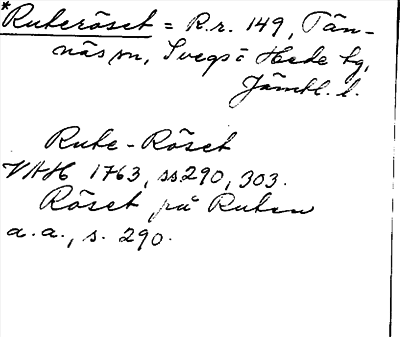 *Ruteröset = R.r. 149, Tän-
näs sn, Svegs o Hede tg,
Jämtl. l.
Rute-Röset
VAH 1763, ss 290, 303.
Röset på Ruten
a.a., s. 290.